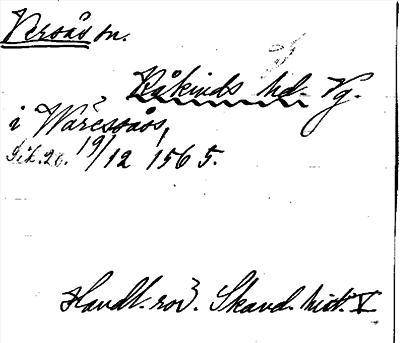 Versås sn.
Kåkinds hd. Vg.
i Wäressåås,
19/12 1565.
Handl. rör. Skand. hist. V